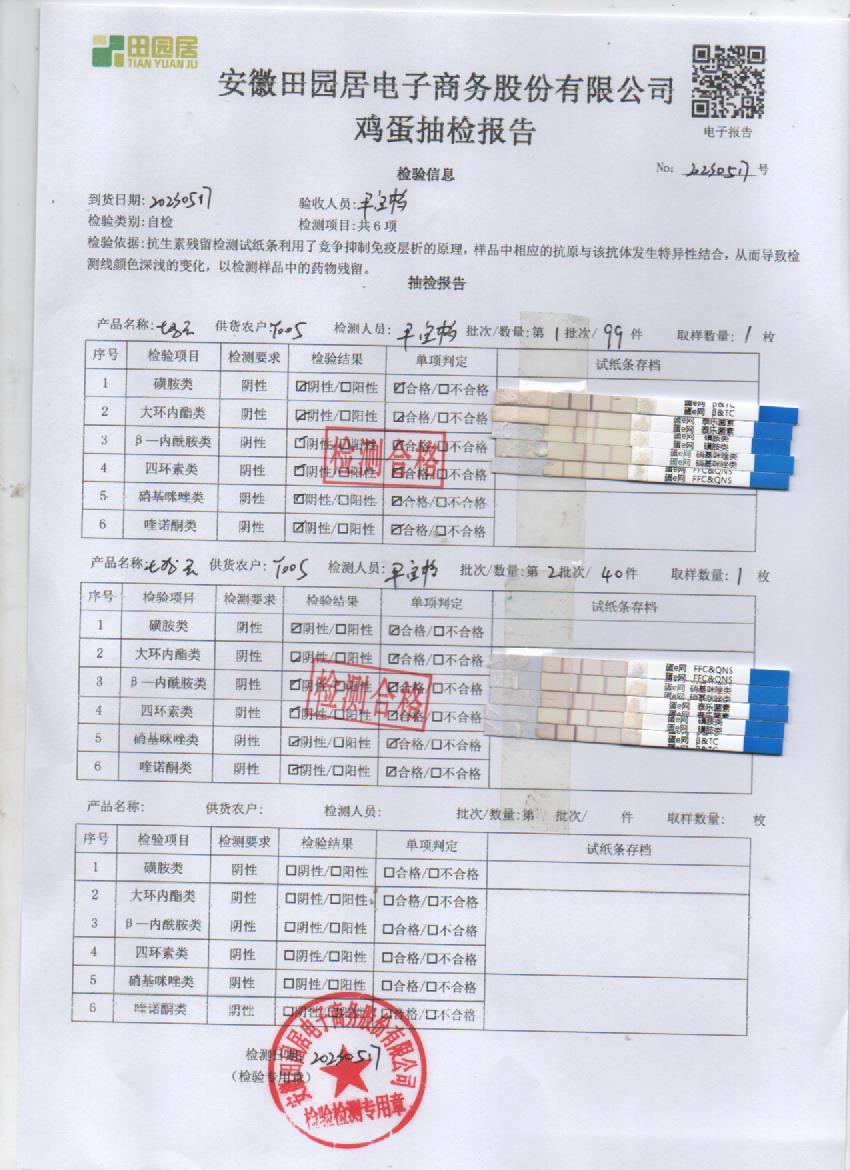 田园居
TIAN YUAN JU
安徽田园居电子商务股份有限公司
鸡蛋抽检报告
电子报告
检验信息
No: 20230517 号
到货日期: 20230517 验收人员:
检验类别: 自检 检测项目: 共6项
检验依据: 抗生素残留检测试纸条利用了竞争抑制免疫层析的原理, 样品中相应的抗原与该抗体发生特异性结合, 从而导致检
测线颜色深浅的变化, 以检测样品中的药物残留。
抽检报告
产品名称: 供货农户: Y005 检测人员: 批次/数量: 第 1 批次/ 99 件 取样数量: 1 枚
序号 检验项目 检测要求 检验结果 单项判定 试纸条存档
1 磺胺类 阴性 ☑阴性/☐阳性 ☑合格/☐不合格
2 大环内酯类 阴性 ☑阴性/☐阳性 ☑合格/☐不合格
3 β—内酰胺类 阴性 ☑阴性/☐阳性 ☑合格/☐不合格
4 四环素类 阴性 ☑阴性/☐阳性 ☑合格/☐不合格
5 硝基咪唑类 阴性 ☑阴性/☐阳性 ☑合格/☐不合格
6 喹诺酮类 阴性 ☑阴性/☐阳性 ☑合格/☐不合格
检测合格
蛋e网 β&TC
蛋e网 β&TC
蛋e网 泰乐菌素
蛋e网 泰乐菌素
蛋e网 磺胺类
蛋e网 磺胺类
蛋e网 硝基咪唑类
蛋e网 硝基咪唑类
蛋e网 FFC&QNS
蛋e网 FFC&QNS
产品名称: 供货农户: Y005 检测人员: 批次/数量: 第 2 批次/ 40 件 取样数量: 1 枚
序号 检验项目 检测要求 检验结果 单项判定 试纸条存档
1 磺胺类 阴性 ☑阴性/☐阳性 ☑合格/☐不合格
2 大环内酯类 阴性 ☑阴性/☐阳性 ☑合格/☐不合格
3 β—内酰胺类 阴性 ☑阴性/☐阳性 ☑合格/☐不合格
4 四环素类 阴性 ☑阴性/☐阳性 ☑合格/☐不合格
5 硝基咪唑类 阴性 ☑阴性/☐阳性 ☑合格/☐不合格
6 喹诺酮类 阴性 ☑阴性/☐阳性 ☑合格/☐不合格
检测合格
蛋e网 FFC&QNS
蛋e网 FFC&QNS
蛋e网 硝基咪唑类
蛋e网 硝基咪唑类
蛋e网 泰乐菌素
蛋e网 泰乐菌素
蛋e网 磺胺类
蛋e网 磺胺类
蛋e网 β&TC
蛋e网 β&TC
产品名称: 供货农户: 检测人员: 批次/数量: 第 批次/ 件 取样数量: 枚
序号 检验项目 检测要求 检验结果 单项判定 试纸条存档
1 磺胺类 阴性 ☐阴性/☐阳性 ☐合格/☐不合格
2 大环内酯类 阴性 ☐阴性/☐阳性 ☐合格/☐不合格
3 β—内酰胺类 阴性 ☐阴性/☐阳性 ☐合格/☐不合格
4 四环素类 阴性 ☐阴性/☐阳性 ☐合格/☐不合格
5 硝基咪唑类 阴性 ☐阴性/☐阳性 ☐合格/☐不合格
6 喹诺酮类 阴性 ☐阴性/☐阳性 ☐合格/☐不合格
检测日期: 20230517
(检验专用章)
安徽田园居电子商务股份有限公司
检验检测专用章